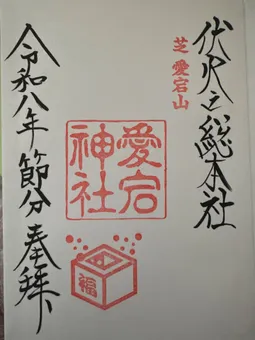 伏火之総本社
芝愛宕山
愛宕
神社
福
令和八年節分奉拝